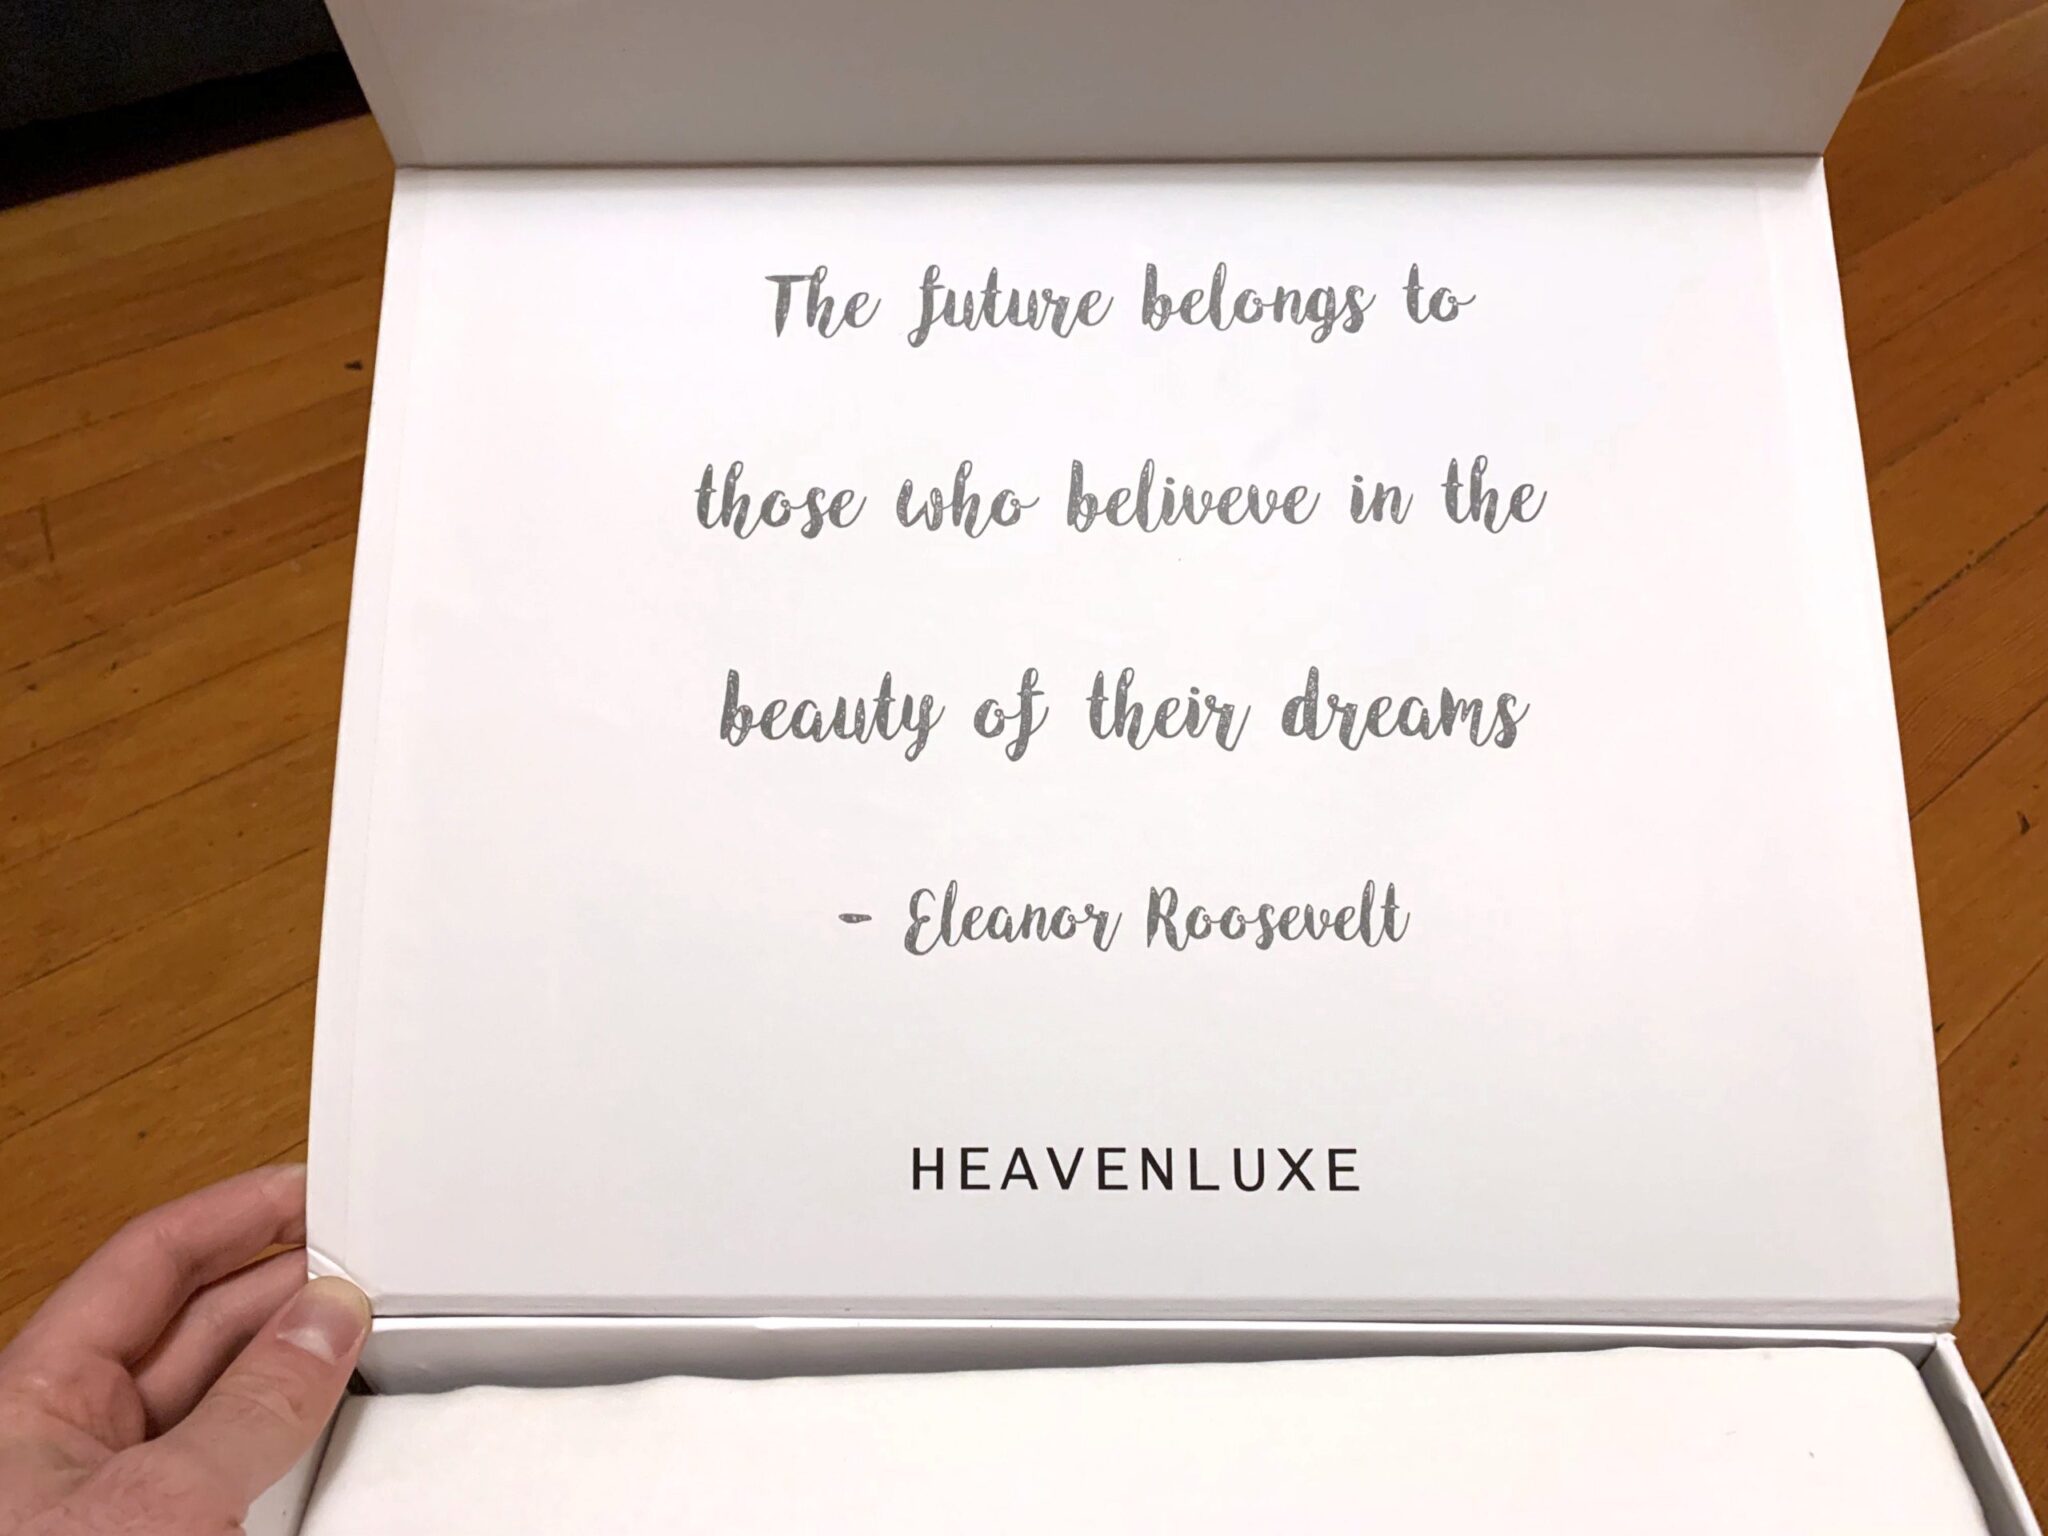 The future belongs to
those who beliveve in the
beauty of their dreams
- Eleanor Roosevelt
HEAVENLUXE